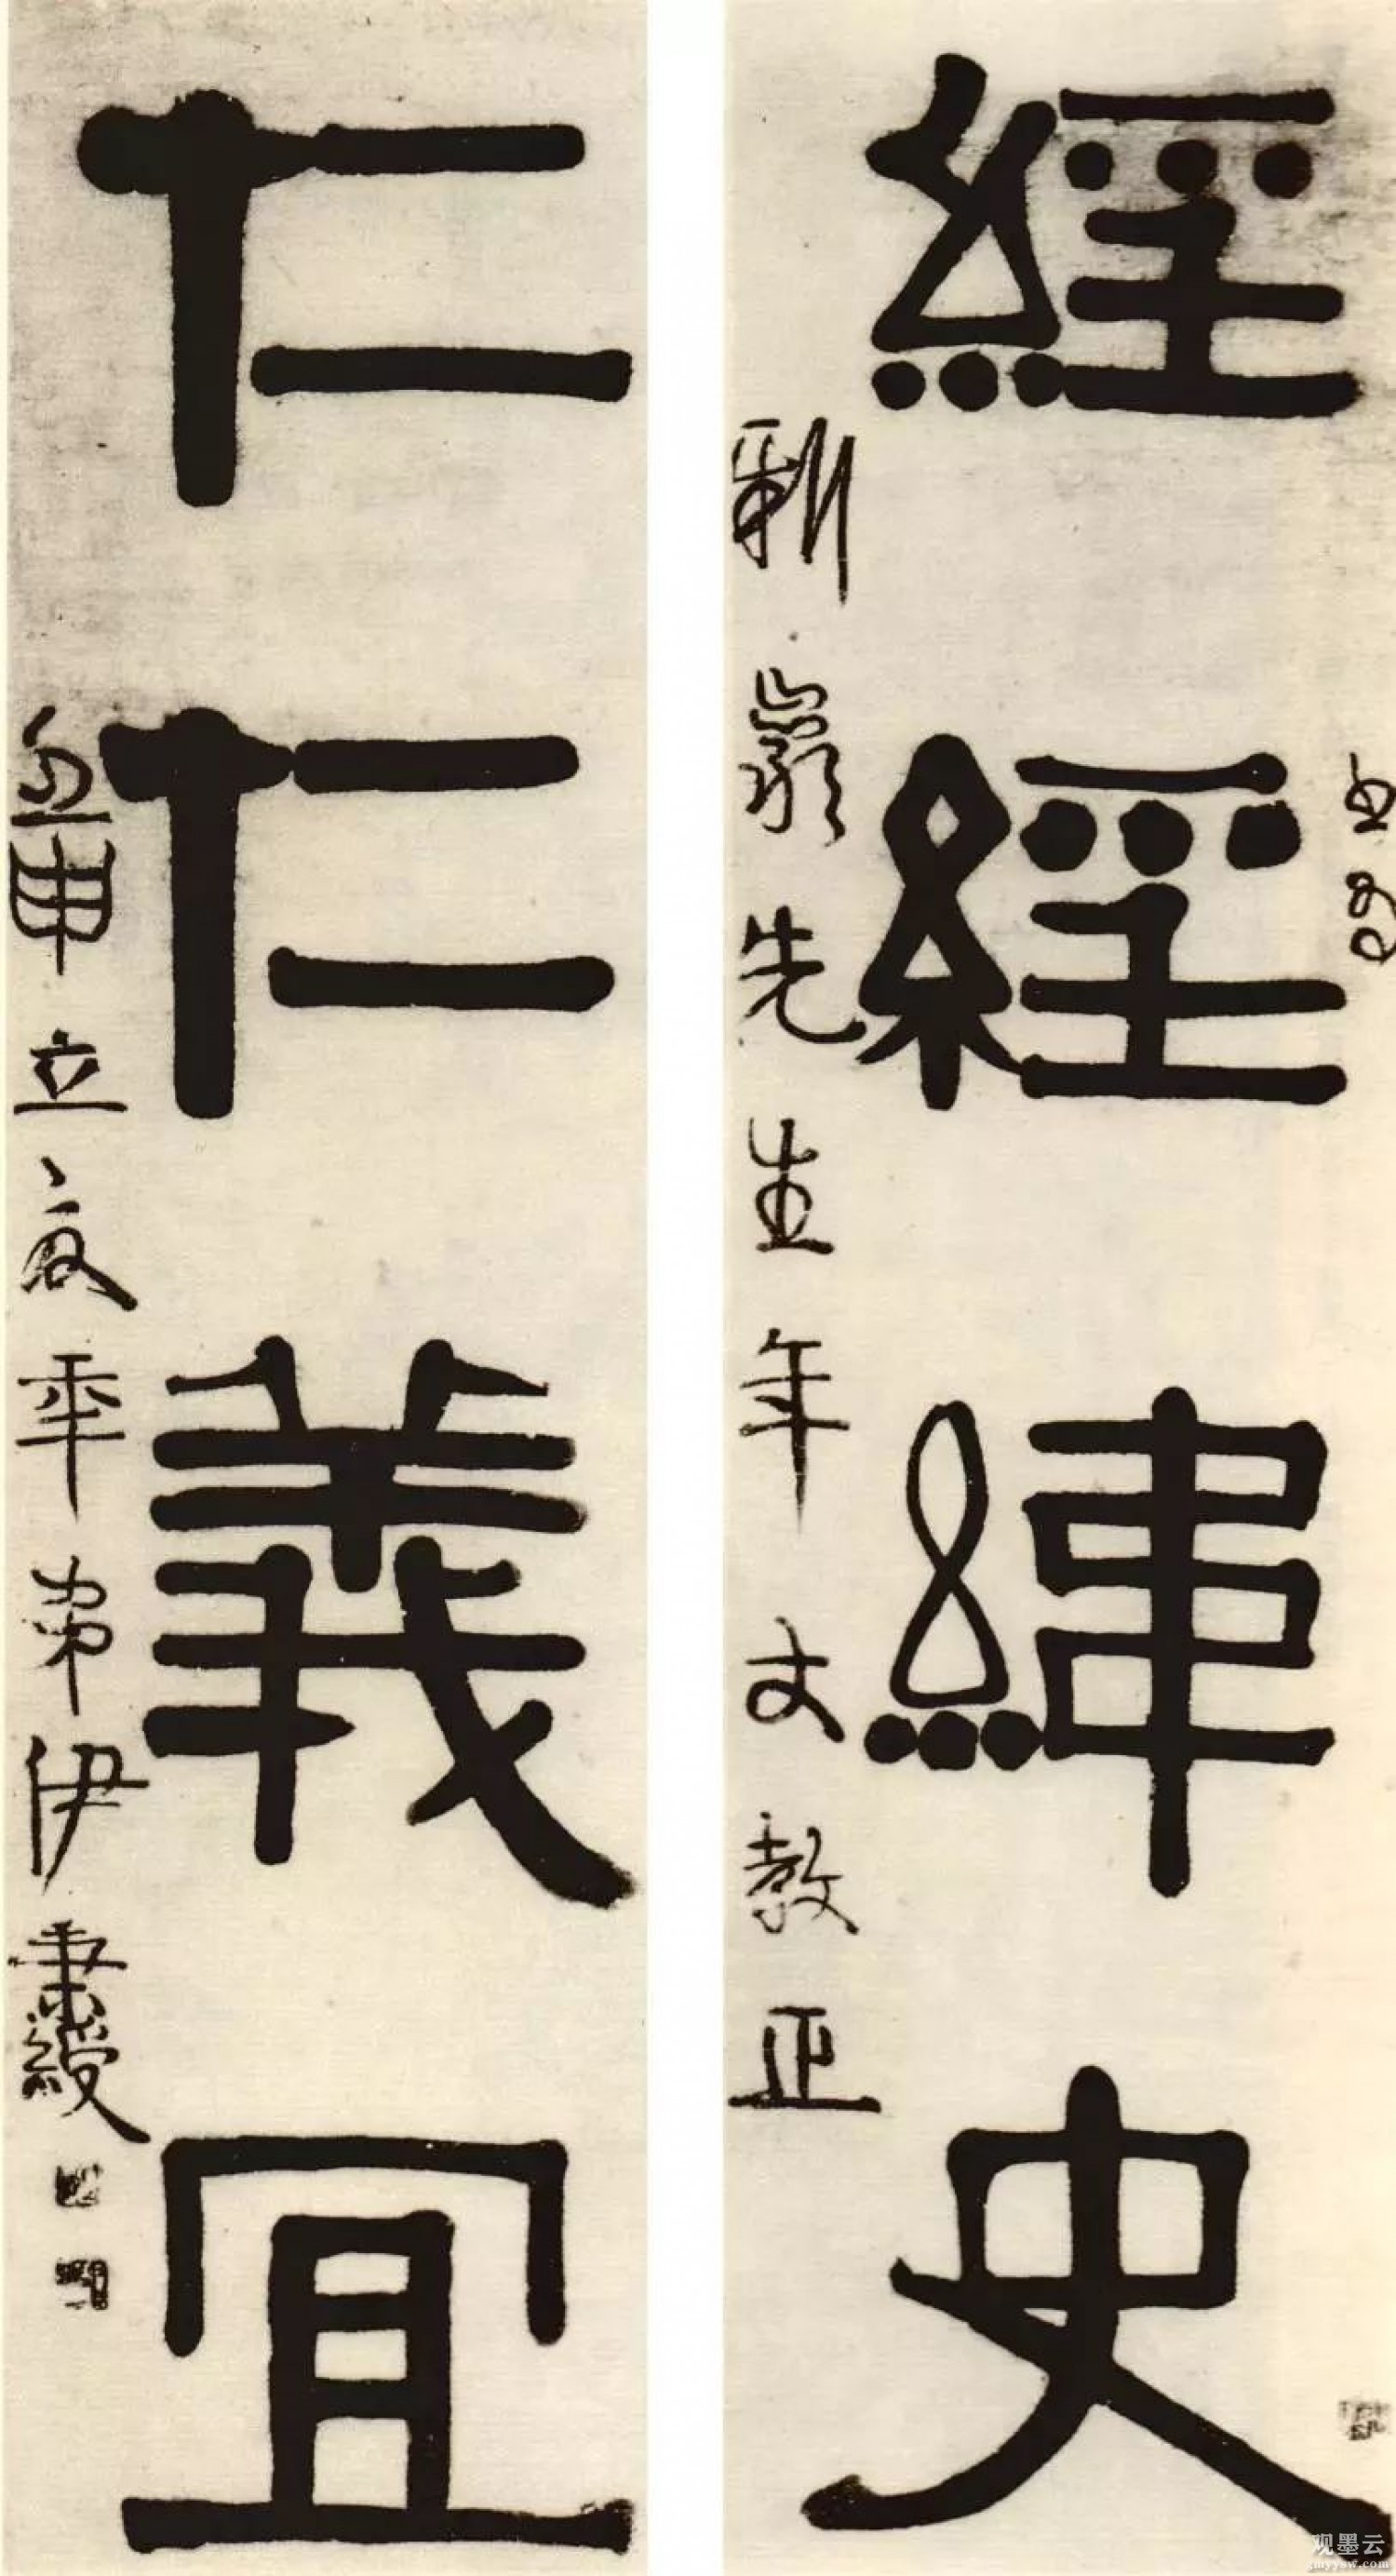 經經緯史
巖先生年丈教正
仁仁義宜
壬申立夏年弟伊秉綬
观墨云
gmyysw.com